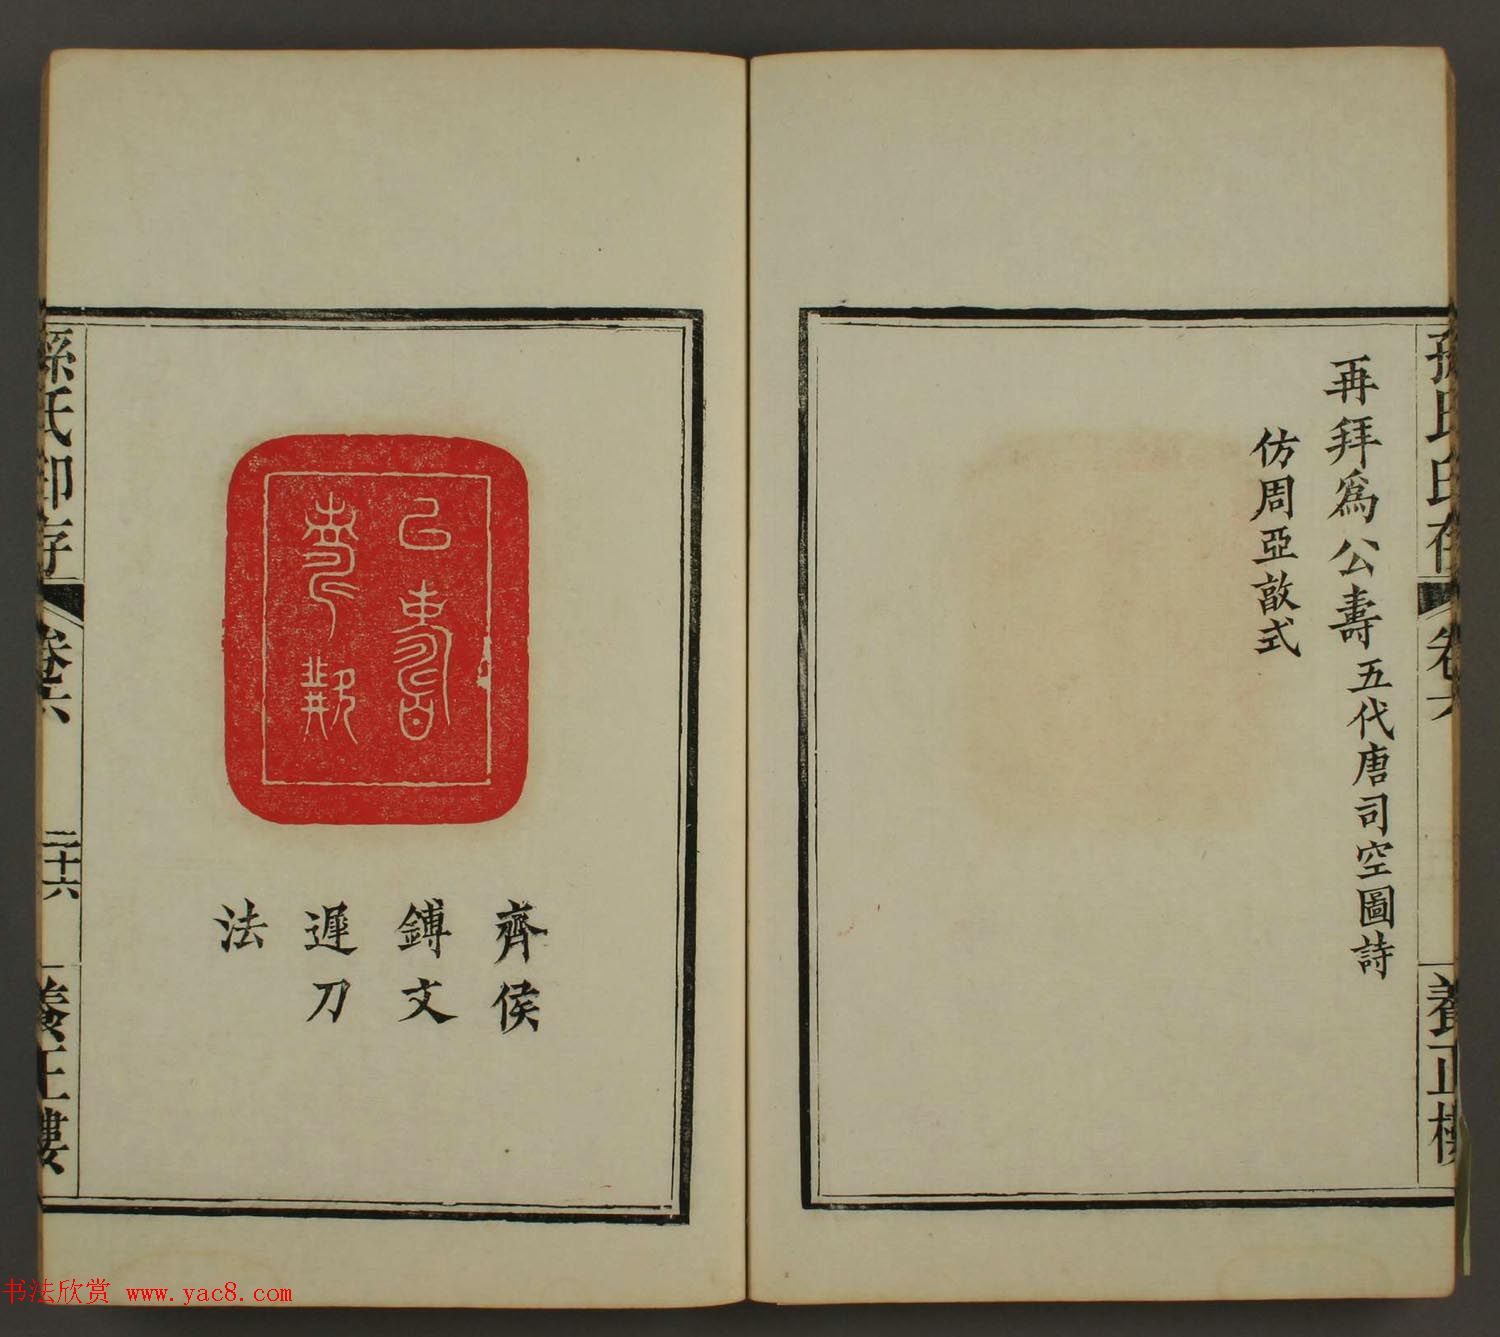 再拜爲公壽五代唐司空圖詩
仿周亞敔式
孫氏印存
卷六
養正樓
齊侯
鎛文
遲刀
法
孫氏印存
卷六
二十六
養正樓
书法欣赏 www.yac8.com